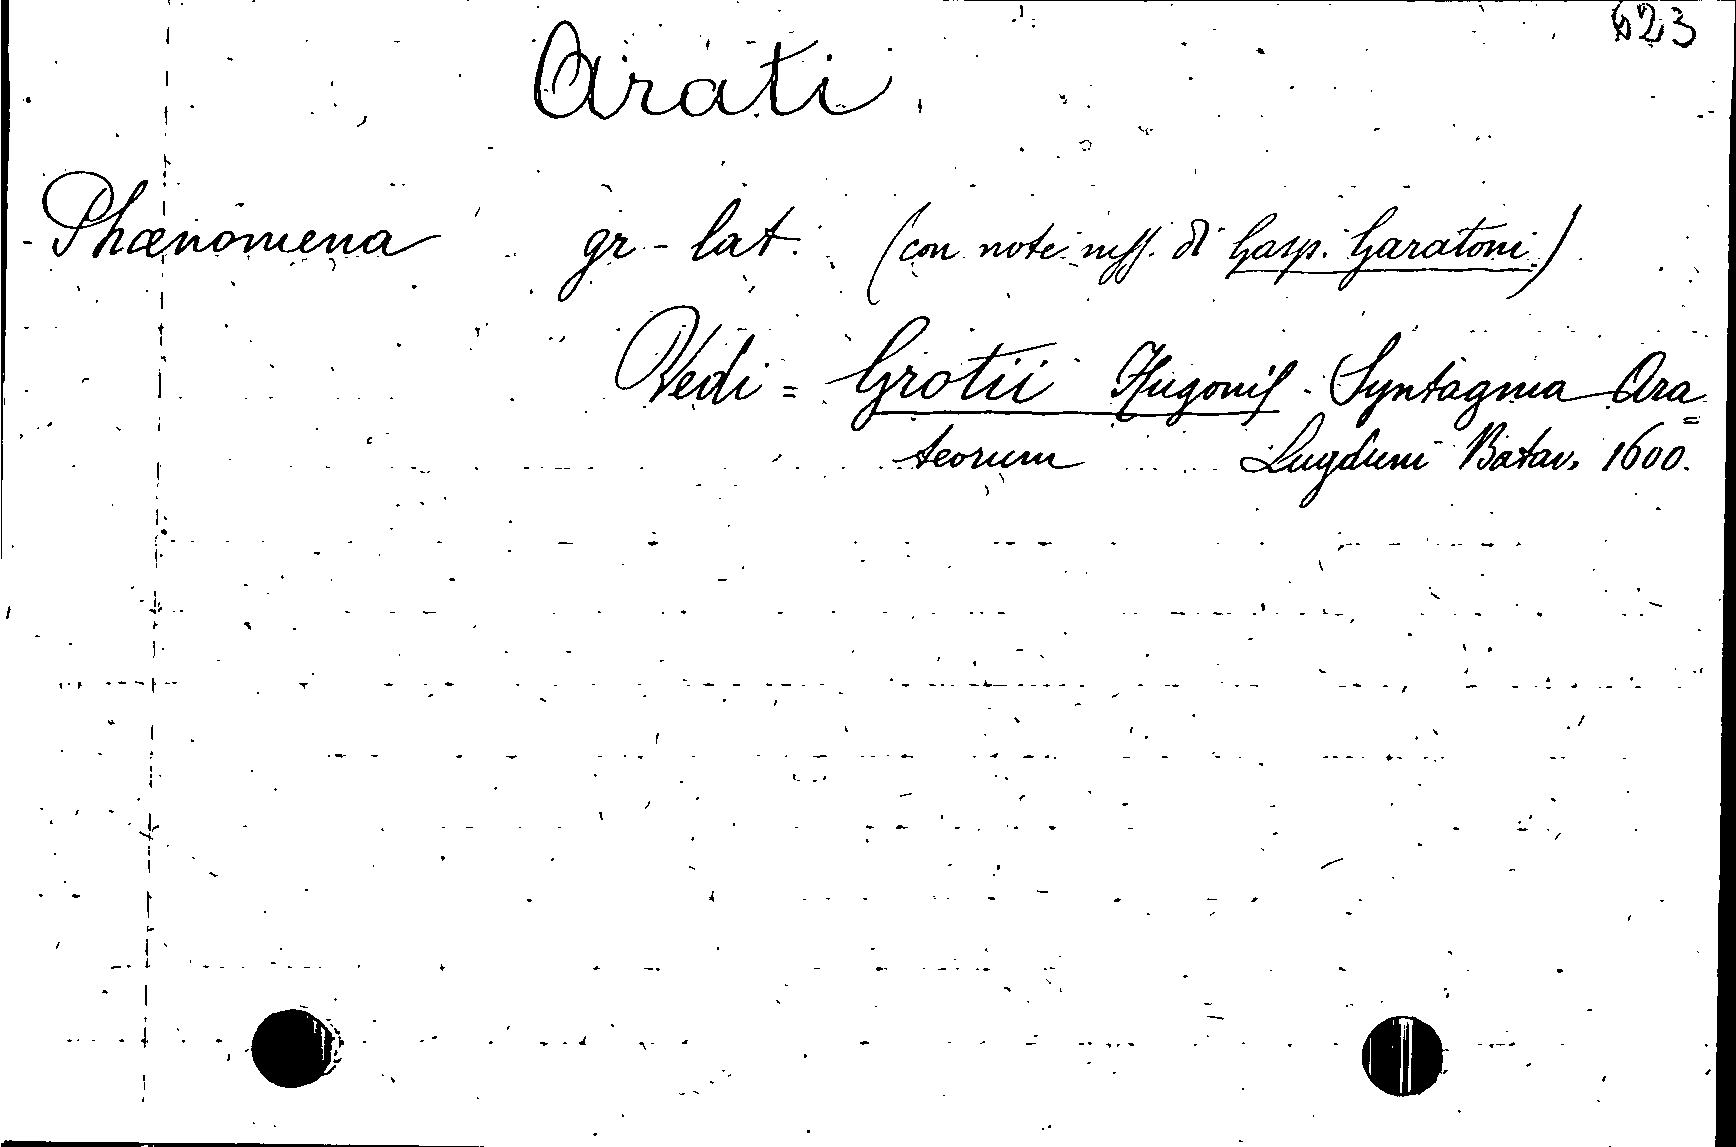 523
Arati
Phænomena gr - lat. (con note mss. di Gasp. Garatoni)
Vedi = Grotii Hugonis - Syntagma Ara=
teorum Lugduni Batav. 1600.